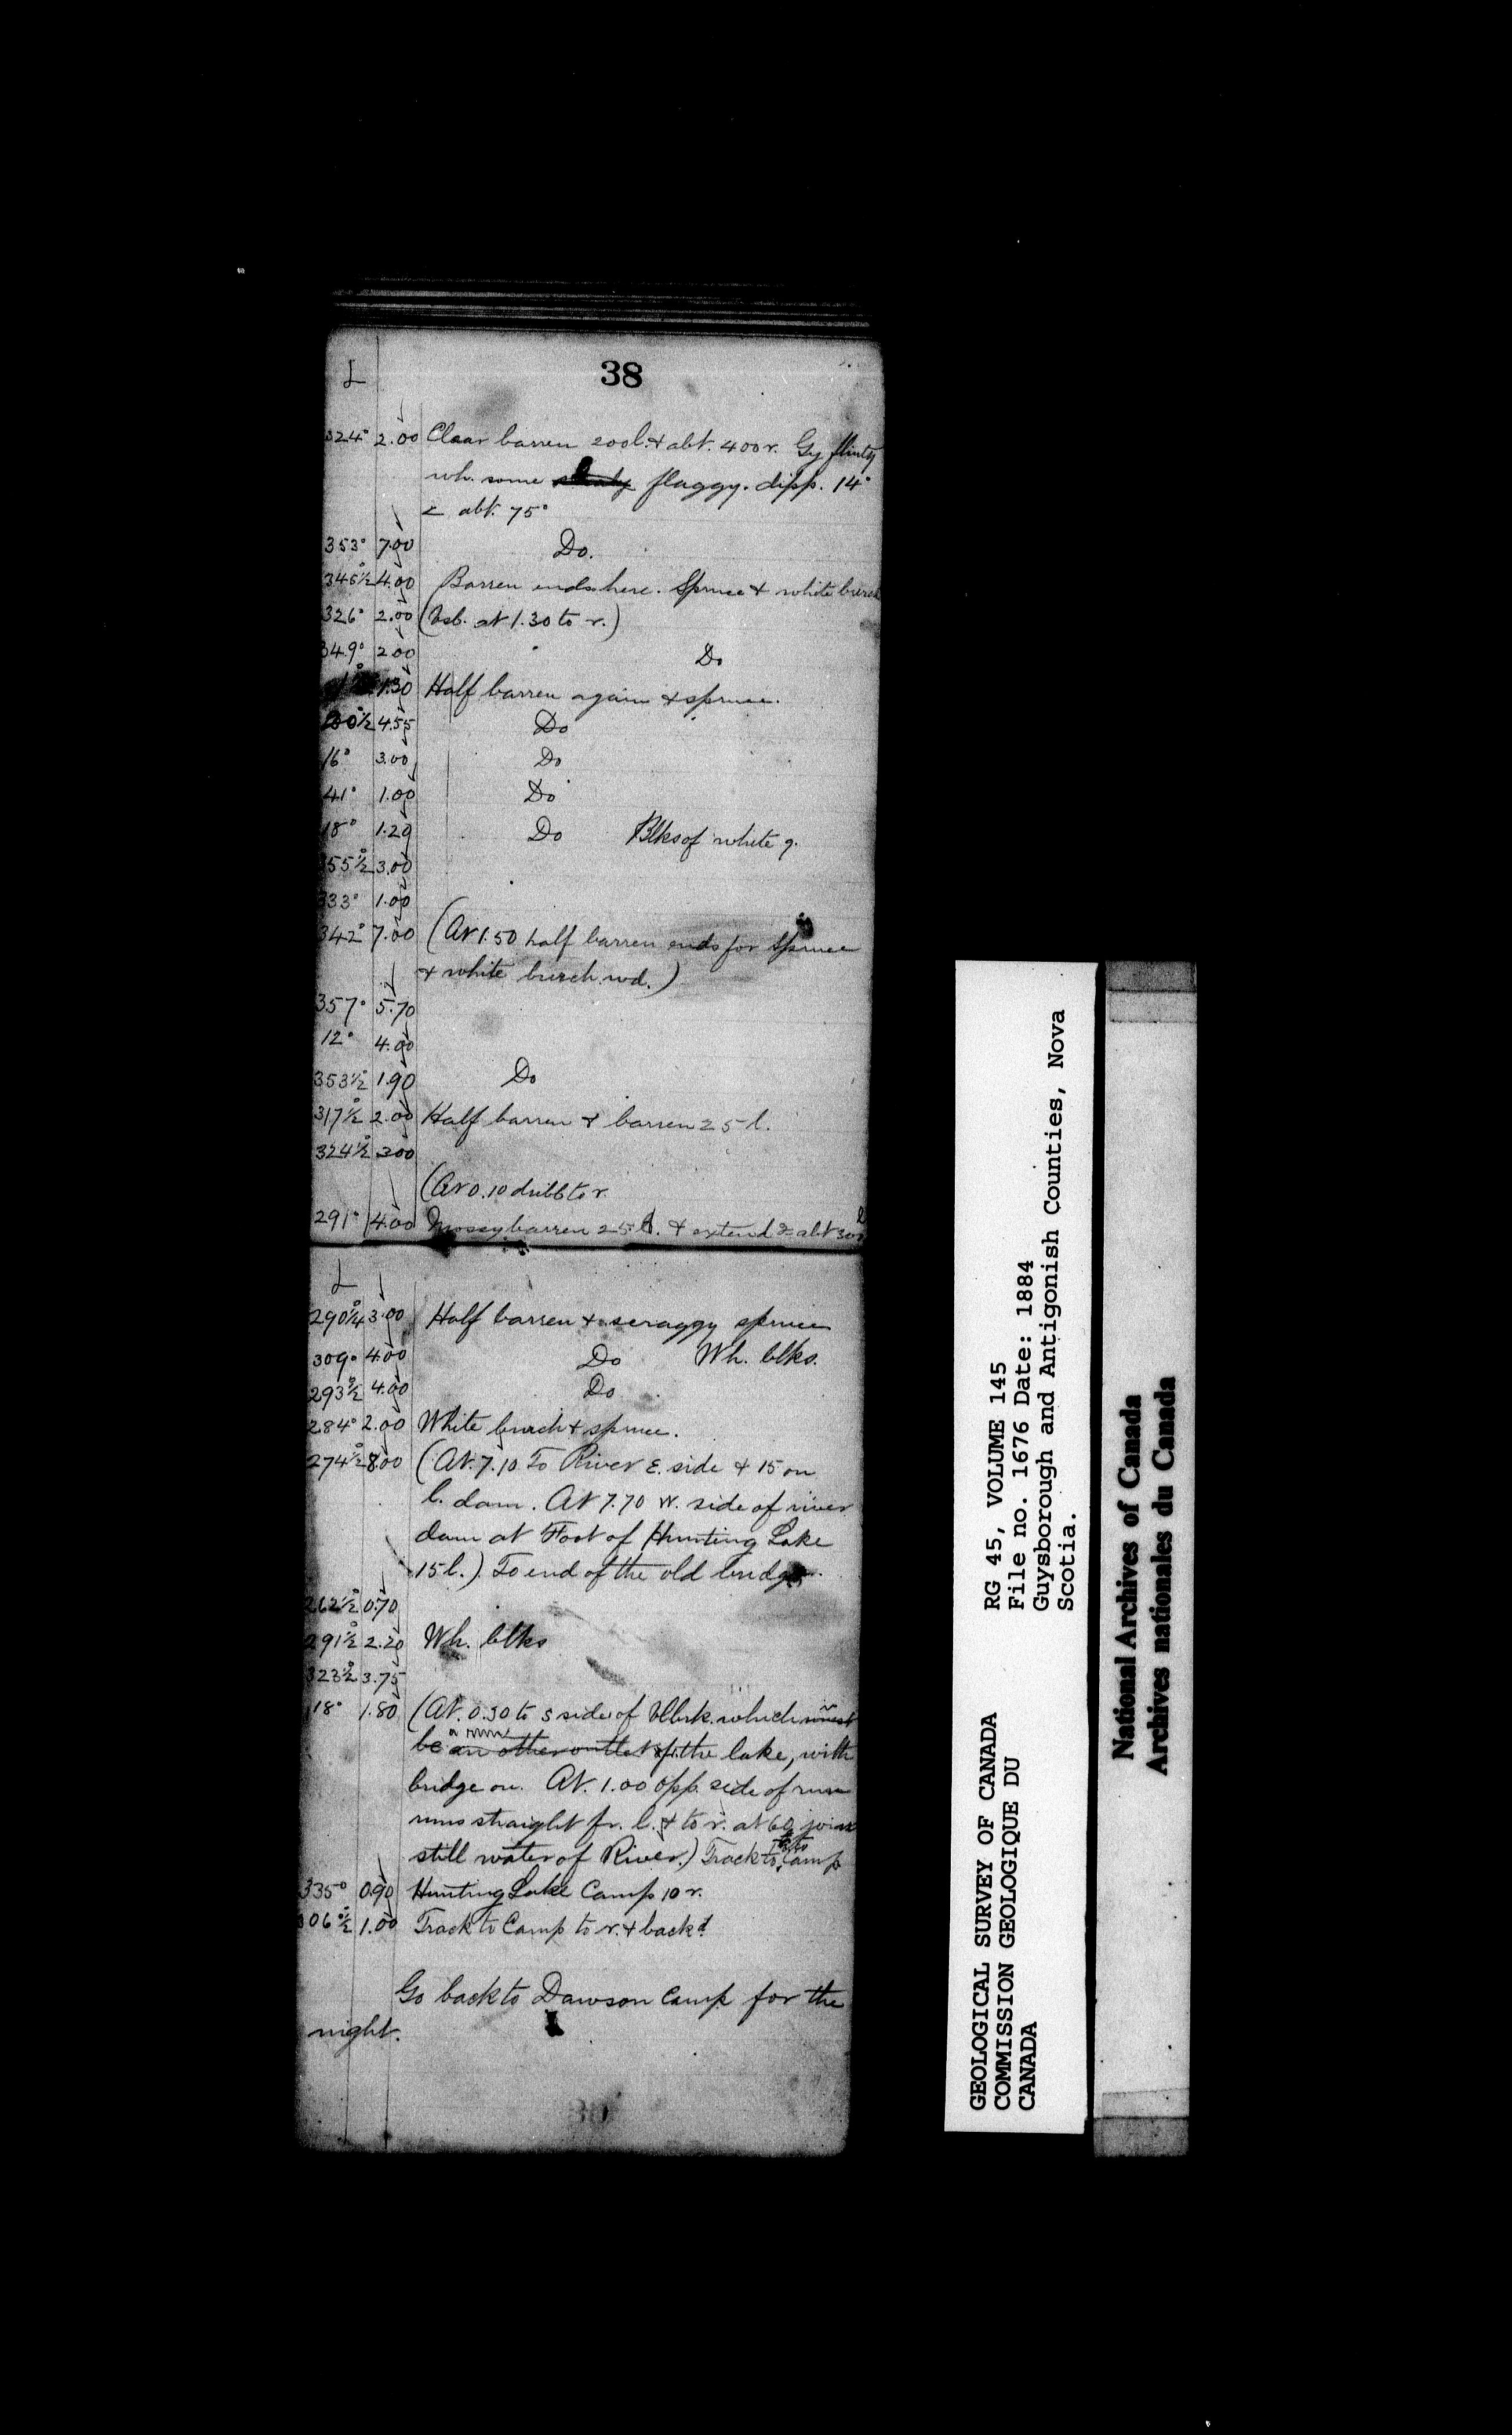 38
L
324° 2.00 Clear barren 200 l. & abt. 400 r. Gy flinty
wh. some flaggy. dipp. 14°
< abt. 75°
353° 7.00 Do.
345°½ 4.00 Barren ends here. Spruce & white burch
326° 2.00 (Vsb. at 1.30 to r.)
349° 2.00 Do
1.30 Half barren again & spruce.
4.55 Do
16° 3.00 Do
41° 1.00 Do
18° 1.20 Do Blks of white q.
355°½ 3.00
333° 1.00
342° 7.00 (At 1.50 half barren ends for spruce
& white burch wd.)
357° 5.70
12° 4.00
353°½ 1.90 Do
317°½ 2.00 Half barren & barren 25 l.
324°½ 3.00
(At 0.10 dribb to r.
291° 4.00 Mossy barren 25 l. & extend abt 30
L
290°¼ 3.00 Half barren & scraggy spruce
309° 4.00 Do Wh. blks.
293°½ 4.00 Do
284° 2.00 White burch & spruce.
274°½ 8.00 (At 7.10 To River E. side & 15 on
l. dam. At 7.70 W. side of river
dam at Foot of Hunting Lake
15 l.) To end of the old bridge.
262°½ 0.70
291°½ 2.20 Wh. blks
323°½ 3.75
18° 1.80 (At 0.30 to s side of which must
a run
be an other outlet of the lake, with
bridge on. At 1.00 opp. side of run
runs straight fr. l. & to r. at 60 joins
still water of River.) Track to Camp
335° 0.90 Hunting Lake Camp 10 r.
306°½ 1.00 Track to Camp to r. & backd.
Go back to Dawson Camp for the
night.
GEOLOGICAL SURVEY OF CANADA
COMMISSION GEOLOGIQUE DU
CANADA
RG 45, VOLUME 145
File no. 1676 Date: 1884
Guysborough and Antigonish Counties, Nova
Scotia.
National Archives of Canada
Archives nationales du Canada